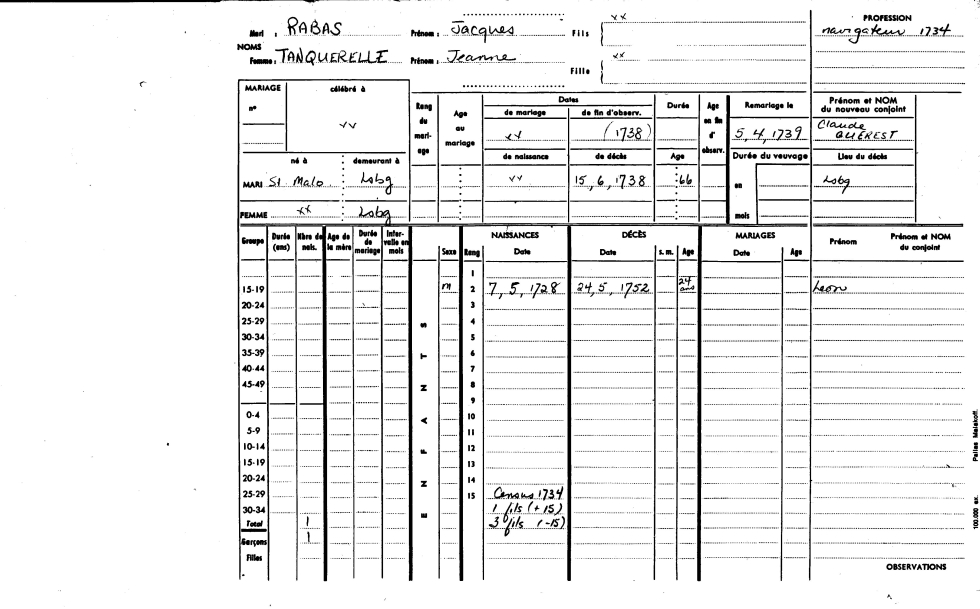 PROFESSION
Mari : RABAS Prénom : Jacques Fils xx navigateur 1734
NOMS
Femme : TANQUERELLE Prénom : Jeanne xx
Fille
MARIAGE célébré à
n° xx
Rang du mari-age
Age au mariage
Dates
de mariage de fin d'observ.
xx (1738)
Durée
Age en fin d' observ.
Remariage le
5, 4, 1739
Prénom et NOM du nouveau conjoint
Claude
QUÉREST
né à demeurant à
de naissance de décès Age
Durée du veuvage Lieu du décès
MARI St Malo Lsbg xx 15, 6, 1738 66 en Lsbg
FEMME xx Lsbg mois
Groupe Durée (ans) Nbre de nais. Age de la mère Durée de mariage Inter-valle en mois Sexe Rang
NAISSANCES DÉCÈS MARIAGES
Date Date s. m. Age Date Age Prénom Prénom et NOM du conjoint
ENFANTS
1
15-19 m 2 7, 5, 1728 24, 5, 1752 24 ans Leon
20-24 3
25-29 4
30-34 5
35-39 6
40-44 7
45-49 8
9
0-4 10
5-9 11
10-14 12
15-19 13
20-24 14
25-29 15 Census 1734
30-34 1 fils (+15)
Total 1 3 fils (-15)
Garçons 1
Filles
OBSERVATIONS
100.000 ex. Pallas Malakoff.